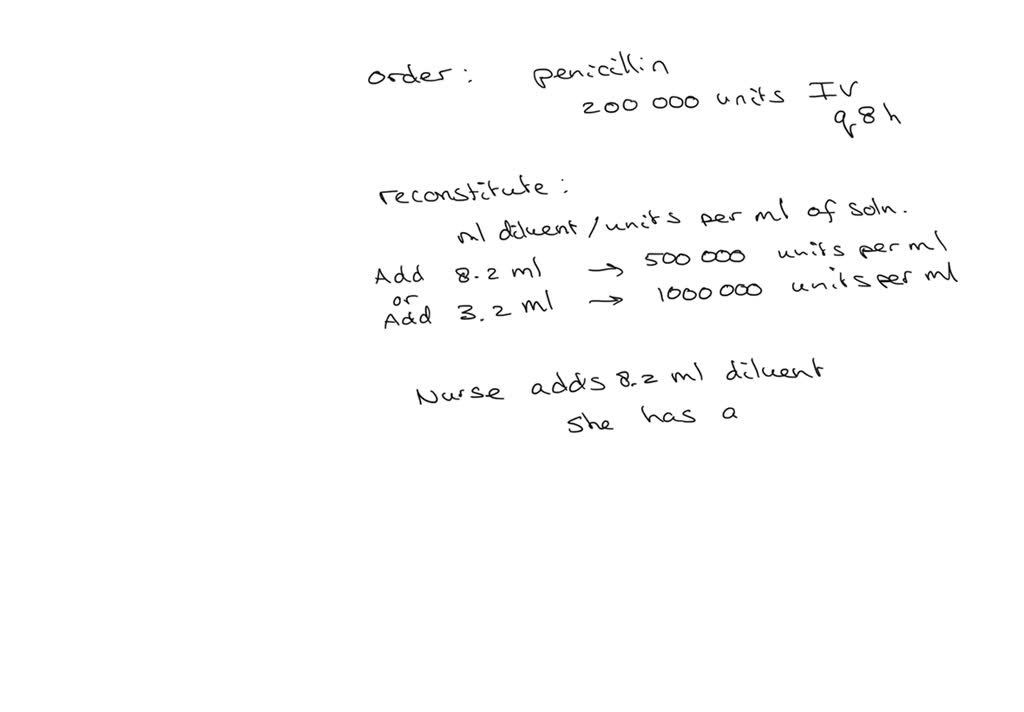 order: penicillin
200 000 units IV
q8h
reconstitute:
ml diluent/units per ml of soln.
Add 8.2 ml → 500 000 units per ml
or
Add 3.2 ml → 1000 000 units per ml
Nurse adds 8.2 ml diluent
She has a